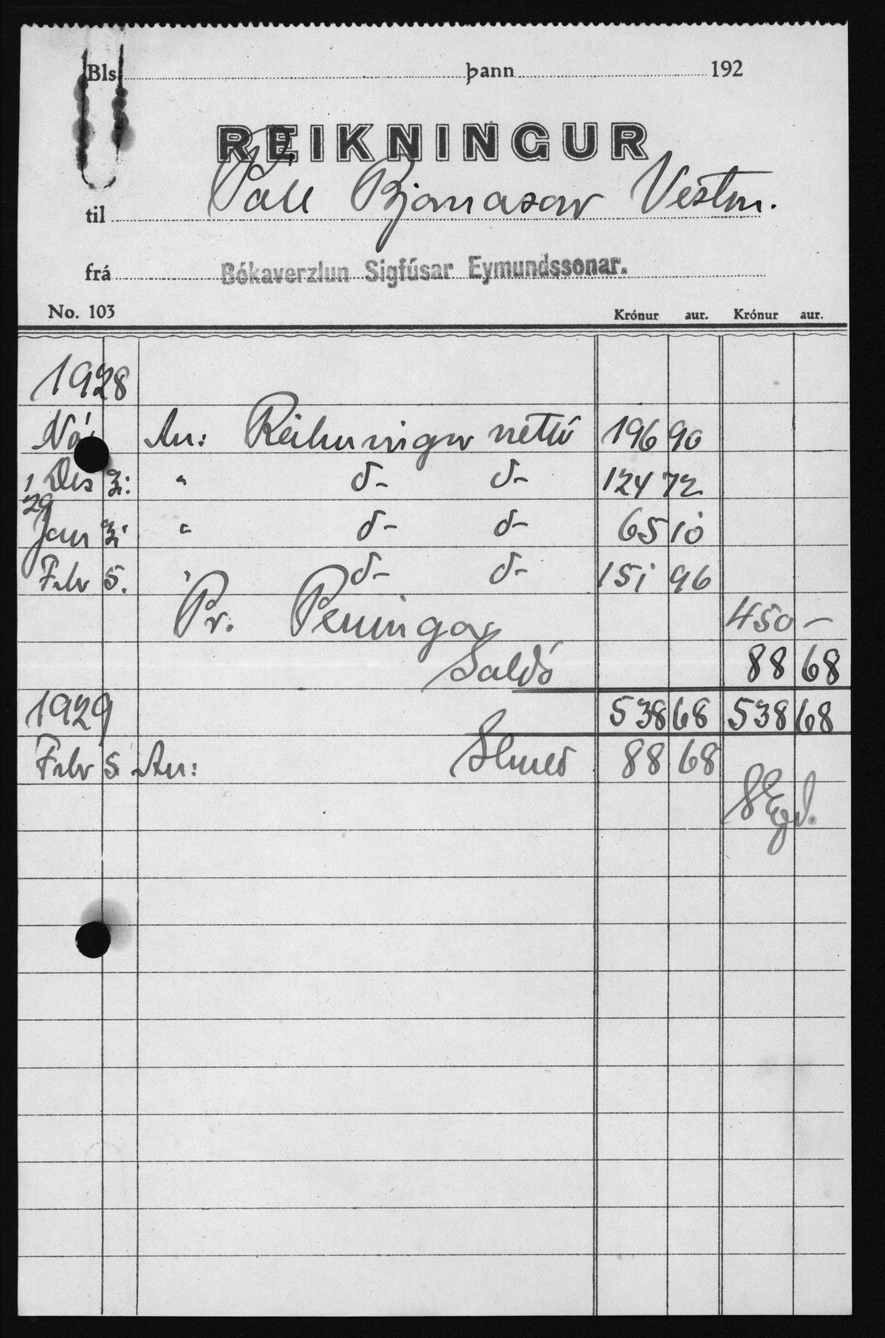 Bls. þann 192
REIKNINGUR
til Páll Bjarnason Vestm.
frá Bókaverzlun Sigfúsar Eymundssonar.
No. 103 Krónur aur. Krónur aur.
1928
An: Reikningar nettó 196 90
Des " d- d- 124 72
29
Jan " d- d- 65 10
Febr 5. " d- d- 151 96
Pr. Peningar 450 -
Saldó 88 68
1929 538 68 538 68
Febr 5 An: 88 68